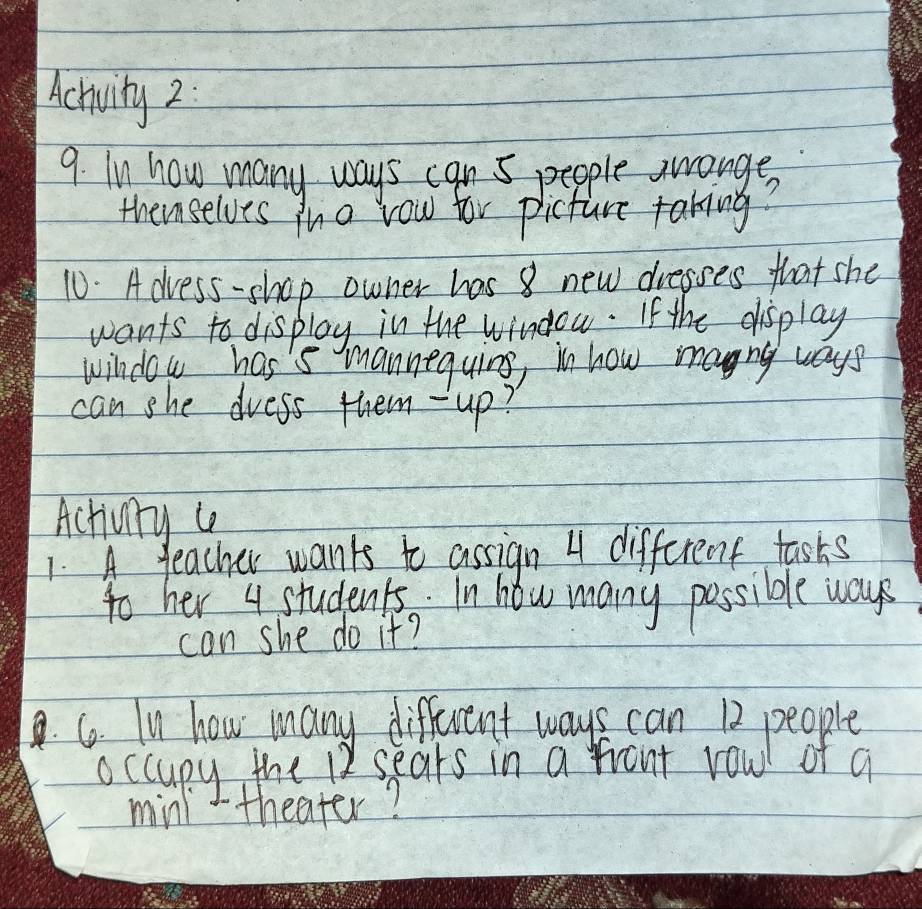 Activity 2:
9. In how many ways can 5 people arrange
themselves in a row for picture taking?
10. A dress-shop owner has 8 new dresses that she
wants to display in the window. If the display
window has 5 mannequins, in how many ways
can she dress them-up?
Activity 6
1. A teacher wants to assign 4 different tasks
to her 4 students. In how many possible ways
can she do it?
6. In how many different ways can 12 people
occupy the 12 seats in a front row of a
mini-theater?